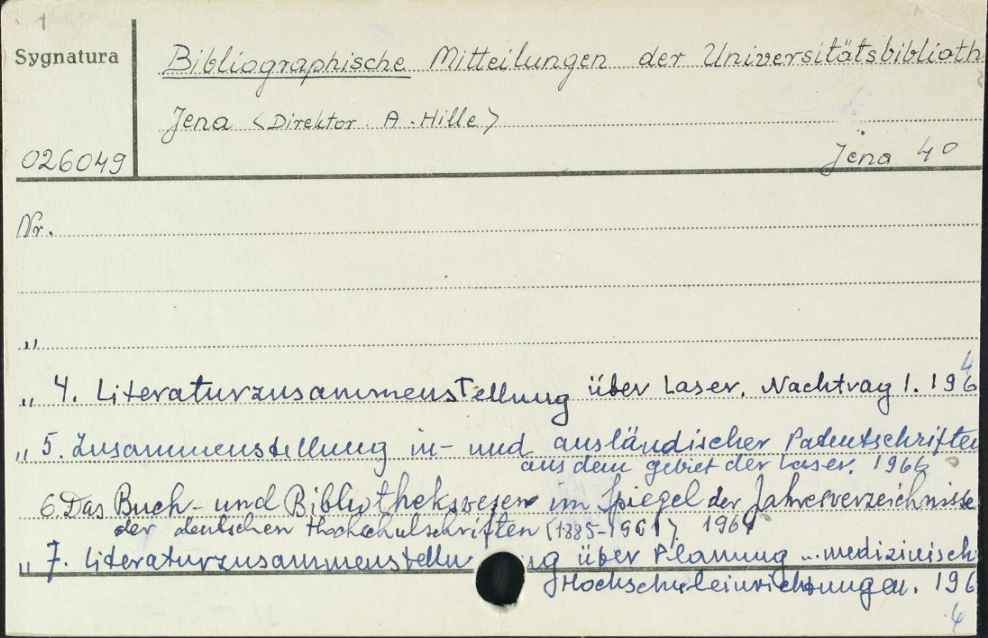 1
Sygnatura
Bibliographische Mitteilungen der Universitätsbiblioth
Jena <Direktor A. Hille>
026049
Jena 40
Nr.
"
" 4. Literaturzusammenstellung über Laser. Nachtrag 1. 1964
" 5. Zusammenstellung in- und ausländischer Patentschriften
aus dem gebiet der Laser. 1966
6. Das Buch- und Bibliothekswesen im Spiegel der Jahresverzeichnisse
der deutschen Hochschulschriften (1885-1961). 1964
" 7. Literaturzusammenstellung über Planung medizinisch
Hochschuleinrichtungen. 1964